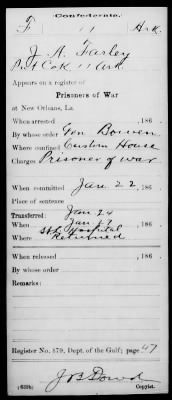 Confederate.
F 11 Ark.
J. A. Farley
Pvt Co K 11 Ark
Appears on a register of
Prisoners of War
at New Orleans, La.
When arrested , 186 .
By whose order Gen Bowen
Where confined Custom House
Charges Prisoner of War
When committed Jan 22 , 186 .
Place of sentence
Transferred: Jan 24
When Jan 27 , 186 .
Where Returned
St L Hospital
When released , 186 .
By whose order
Remarks:
Register No. 879, Dept. of the Gulf; page 47
J B Dowd
(639b) Copyist.